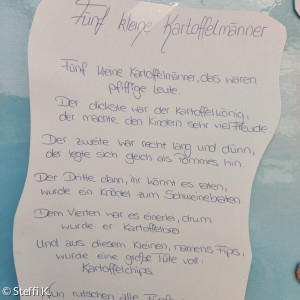 Fünf kleine Kartoffelmänner
Fünf kleine Kartoffelmänner, das waren
pfiffige Leute.
Der dickste war der Kartoffelkönig,
der machte den Kindern sehr viel Freude
Der zweite war recht lang und dünn,
der legte sich gleich als Pommes hin.
Der Dritte dann, ihr könnt es raten,
wurde ein Knödel zum Schweinebraten
Dem Vierten war es einerlei, drum
wurde er Kartoffelbrei
Und aus diesem Kleinen, namens Fips,
wurde eine große Tüte voll
Kartoffelchips.
Nun rutschen alle
© Steffi K.
© Steffi K.